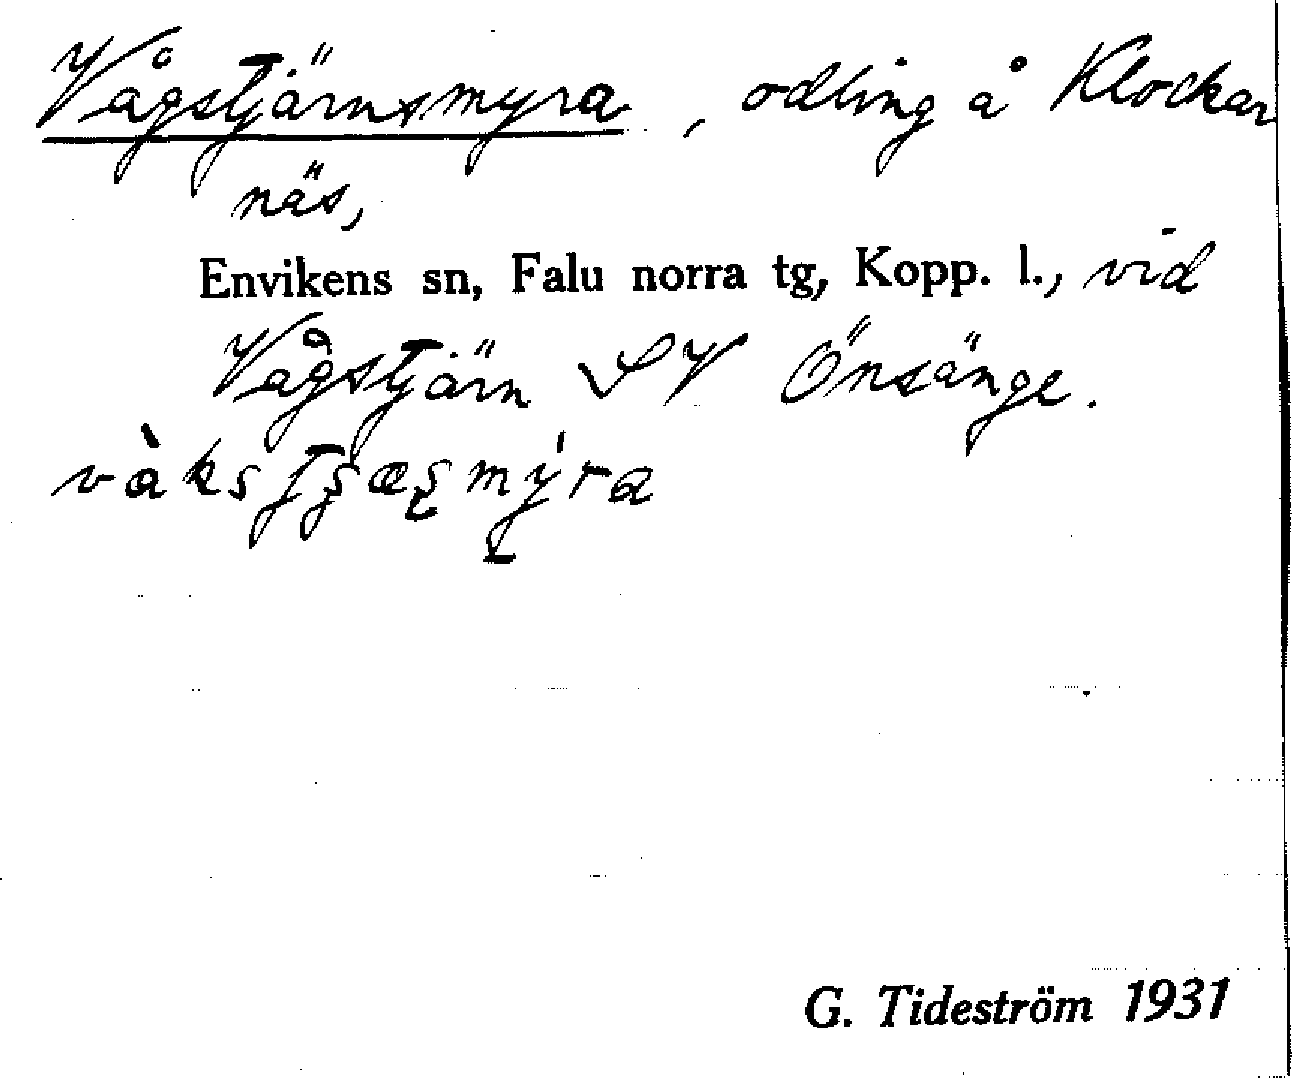 Vågstjärnsmyra, odling å Klockar
näs,
Envikens sn, Falu norra tg, Kopp. l., vid
Vågstjärn SV Önsänge.
G. Tideström 1931